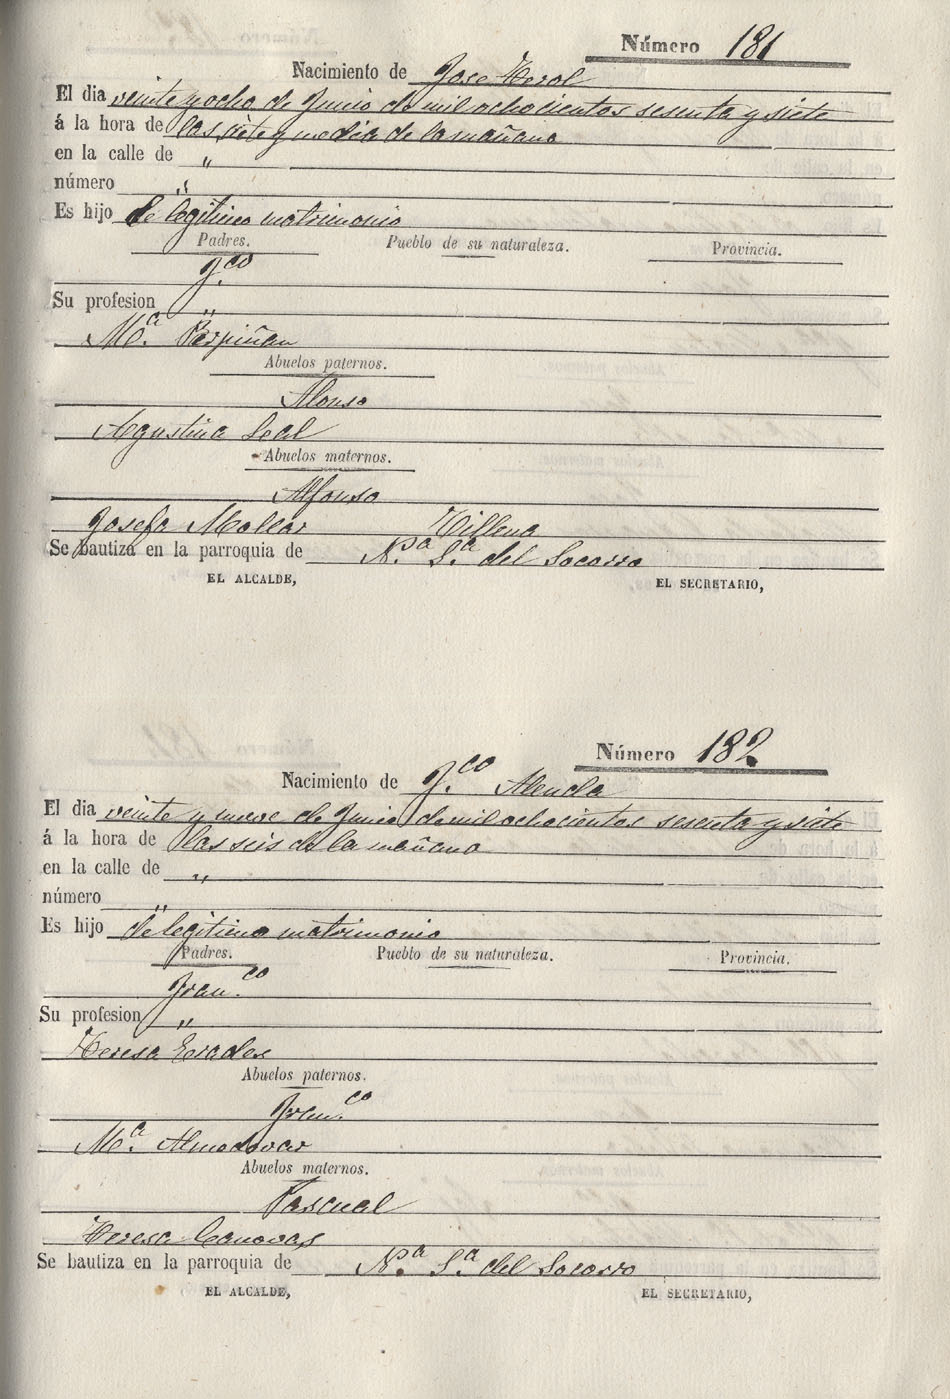 Número 181
Nacimiento de Jose Terol
El dia veinte y ocho de Junio de mil ochocientos sesenta y siete
á la hora de las siete y media de la mañana
en la calle de "
número "
Es hijo de legitimo matrimonio
Padres. Pueblo de su naturaleza. Provincia.
F.co
Su profesion "
M.a Perpiñan
Abuelos paternos.
Alonso
Agustina Leal
Abuelos maternos.
Alfonso
Josefa Mollar Villena
Se bautiza en la parroquia de N.a S.a del Socorro
EL ALCALDE, EL SECRETARIO,
Número 182
Nacimiento de F.co Alenda
El dia veinte y nueve de Junio de mil ochocientos sesenta y siete
á la hora de las seis de la mañana
en la calle de "
número "
Es hijo de legitimo matrimonio
Padres. Pueblo de su naturaleza. Provincia.
Fran.co
Su profesion "
Teresa Erades
Abuelos paternos.
Fran.co
M.a Almodovar
Abuelos maternos.
Pascual
Teresa Canovas
Se bautiza en la parroquia de N.a S.a del Socorro
EL ALCALDE, EL SECRETARIO,